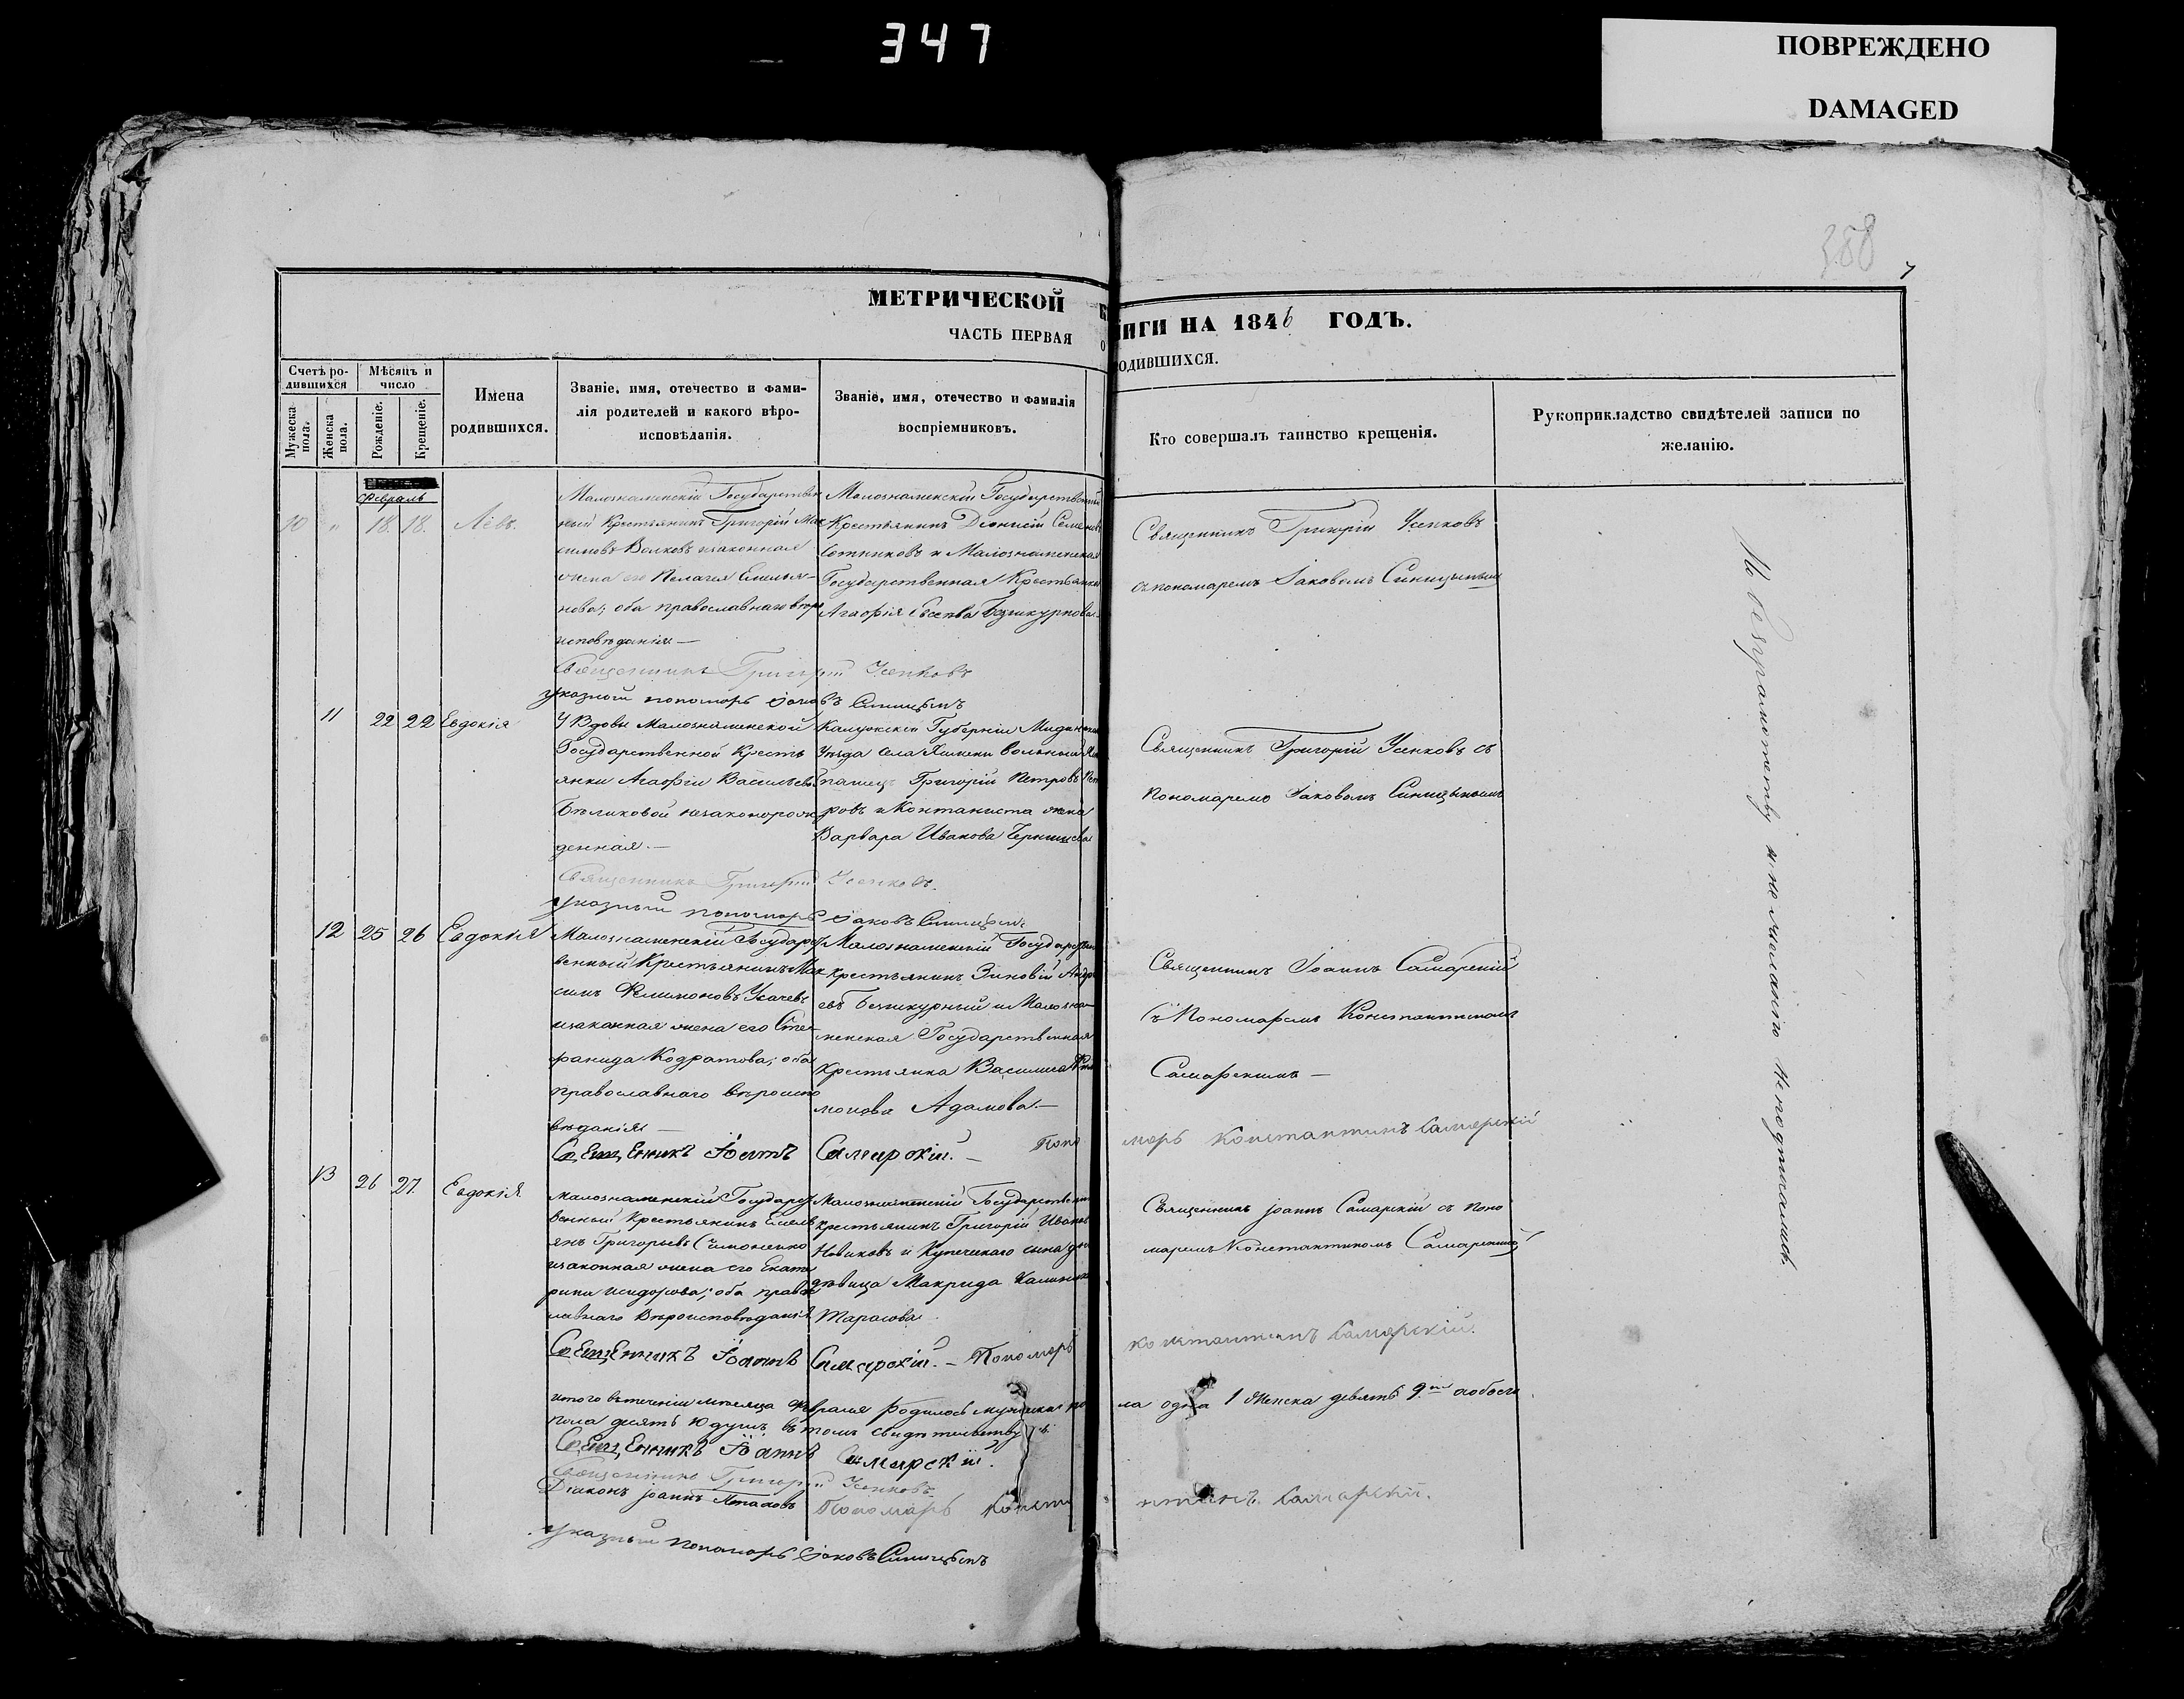 347
ПОВРЕЖДЕНО
DAMAGED
388
7
МЕТРИЧЕСКОЙ КНИГИ НА 1846 ГОДЪ.
ЧАСТЬ ПЕРВАЯ О РОДИВШИХСЯ.
Счетъ ро-
дившихся
Мужеска пола.
Женска пола.
Мѣсяцъ и
число
Рожденіе.
Крещеніе.
Имена
родившихся.
Званіе, имя, отечество и фами-
лія родителей и какого вѣро-
исповѣданія.
Званіе, имя, отечество и фамилія
воспріемниковъ.
Кто совершалъ таинство крещенія.
Рукоприкладство свидѣтелей записи по
желанію.
Февраль
10 " 18. 18. Левъ.
Малознаменскій Государствен
ный Крестьянинъ Григорій Мак
симовъ Волковъ изаконная
жена его Пелагея Емелья-
нова; оба православнаго вѣро
исповѣданія —
Малознаменскій Государственный
Крестьянинъ Діонисій Семеновъ
Сотниковъ и Малознаменская
Государственная Крестьянка
Агафія Евсеева Безчкурнова.
Священникъ Григорій Усенковъ
съ пономаремъ Іаковомъ Синицынымъ
Священникъ Григорій Усенковъ
указный пономарь Іаковъ Синицынъ
11 22 22 Евдокія
У Вдовы Малознаменской
Государственной Кресть
янки Агафіи Васильевой
Бѣликовой незаконорож
денная. —
Калужской Губерніи
Уѣзда Села вольный
Григорій Петровъ
ровъ и жена
Варвара Иванова
Священникъ Григорій Усенковъ съ
пономаремъ Іаковомъ Синицынымъ
Священникъ Григорій Усенковъ.
указный пономарь Іаковъ Синицынъ
12 25 26 Евдокія
Малознаменскій Государст
венный Крестьянинъ Мак
симъ Филимоновъ Усачевъ
изаконная жена его Сте
фанида Кодратова; оба
православнаго вѣроиспо
вѣданія —
Малознаменскій Государствен
крестьянинъ Зиновій Андре
евъ Безчкурный и Малозна
менская Государственная
Крестьянка Василиса
Адамова. —
Священникъ Іоаннъ Самарскій
съ Пономаремъ Константиномъ
Самарскимъ —
Священникъ Іоаннъ Самарскій. — Пономарь Константинъ Самарскій
13 26 27. Евдокія
Малознаменскій Государст
венный Крестьянинъ Емель
янъ Григорьевъ Симоненко
изаконная жена его Екате
рина Исидорова; оба правос
лавнаго Вѣроисповѣданія
Малознаменскій Государствен
крестьянинъ Григорій Иванов
Новиковъ и Купеческаго сына до
дѣвица Макрида Калин
Тарасова
Священникъ Іоаннъ Самарскій съ поно
маремъ Константиномъ Самарскимъ
Священникъ Іоаннъ Самарскій. — Пономарь Константинъ Самарскій.
итого втеченіи мѣсяца Февраля родилось мужеска по ла одна 1 Женска девять 9. ть а обоего
пола десять 10 душъ, въ томъ свидѣтельству
Священникъ Іоаннъ Самарскій.
Священникъ Григорій Усенковъ
Діаконъ Іоаннъ
Пономарь Константинъ Самарскій.
указный пономарь Іаковъ Синицынъ
По безграмотству и по желанію не подписались